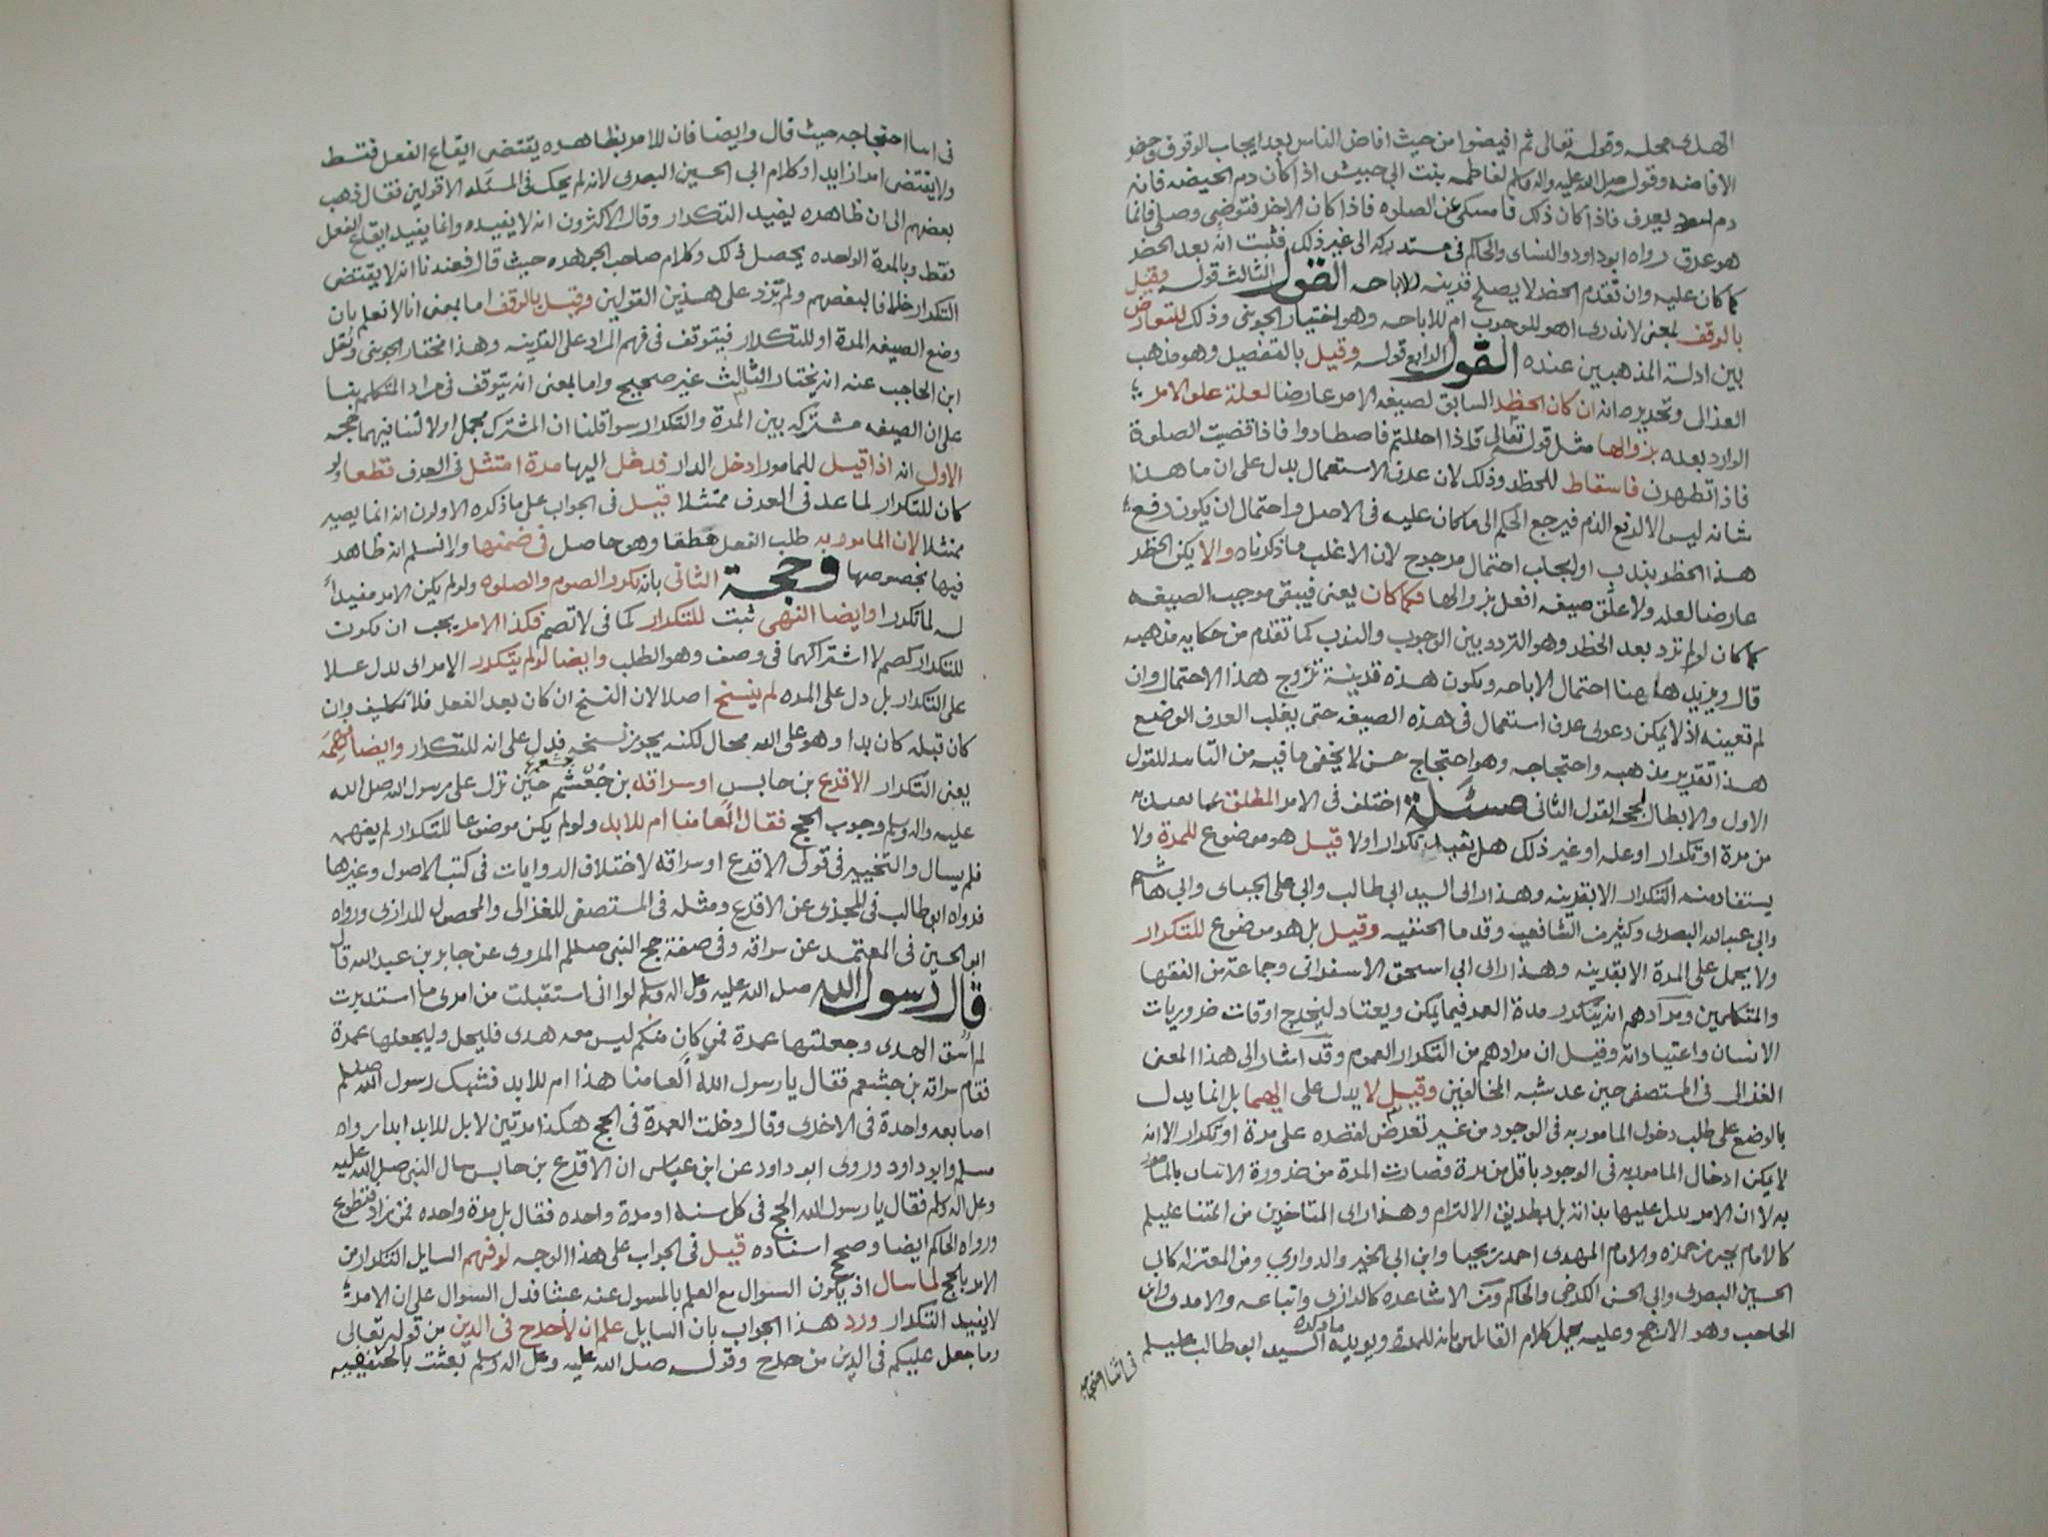 الهدى محله وقوله تعالى ثم افيضوا من حيث افاض الناس بعد ايجاب الوقوف وحظر
الافاضه وقوله صلى الله عليه واله وسلم لفاطمه بنت ابي حبيش اذا كان دم الحيضه فانه
دم اسود يعرف فاذا كان ذلك فامسكى عن الصلوه فاذا كان الاخر فتوضئى وصلى فانما
هو عرق رواه ابو داود والنساى والحاكم فى مستدركه الى غير ذلك فثبت انه بعد الحظر
كما كان عليه وان تقدم الحظر لا يصلح قرينه للاباحه القول الثالث قوله وقيل
بالوقف بمعنى لا ندرى اهو للوجوب ام للاباحه وهو اختيار الجوينى وذلك للتعارض
بين ادلة المذهبين عنده القول الرابع قوله وقيل بالتفصيل وهو مذهب
الغزالى وتحريره انه ان كان الحظر السابق لصيغه الامر عارضا لعلة علق الامر
الوارد بعده بزوالها مثل قوله تعالى فاذا احللتم فاصطادوا فاذا قضيت الصلوة
فاذا تطهرن فاسقاط للحظر وذلك لان عرف الاستعمال يدل على ان ما هذا
شانه ليس الا لرفع الذم فيرجع الحكم الى ما كان عليه فى الاصل واحتمال ان يكون رفع
هذا الحظر بندب او ايجاب احتمال مرجوح لان الاغلب ما ذكرناه والا يكن الحظر
عارضا لعله ولا علق صيغه افعل بزوالها فكما كان يعنى فيبقى موجب الصيغه
كما كان لو لم ترد بعد الحظر وهو التردد بين الوجوب والندب كما تقدم من حكايه مذهبه
قال ويزيد ها هنا احتمال الاباحه ويكون هذه قرينة تزوج هذا الاحتمال وان
لم تعينه اذ لا يمكن دعوى عرف استعمال فى هذه الصيغه حتى يغلب العرف الوضع
هذا تقرير مذهبه واحتجاجه وهو احتجاج حسن لا يخفى ما فيه من التاييد للقول
الاول والابطال لحجه القول الثانى مسئلة اختلف فى الامر المطلق عما يعين به
من مرة او تكرار او عله او غير ذلك هل يفيد تكرار اولا قيل هو موضوع للمرة ولا
يستفاد منه التكرار الا بقرينه وهذا راى السيد ابى طالب وابى على الجباى وابى هاشم
وابى عبدالله البصرى وكثير من الشافعيه وقدما الحنفيه وقيل بل هو موضوع للتكرار
ولا يحمل على المرة الا بقرينه وهذا راى ابى اسحق الاسفرانى وجماعة من الفقها
والمتكلمين ومرادهم انه يتكرر مدة العمر فيما يمكن ويعتاد ليخرج اوقات ضروريات
الانسان واعتياداته وقيل ان مرادهم من التكرار العموم وقد اشار الى هذا المعنى
الغزالى فى المستصفى حين عد شبه المخالفين وقيل لا يدل على ايهما بل انما يدل
بالوضع على طلب دخول المامور به فى الوجود من غير تعرض لقصده على مرة او تكرار الا انه
لا يمكن ادخال المامور به فى الوجود باقل من مرة فصارت المرة من ضرورة الاتيان بالمامور
به لا ان الامر يدل عليها بذاته بل بطريق الالتزام وهذا راى المتاخرين من ائمتنا عليلم
كالامام يحيى بن حمزه والامام المهدى احمد بن يحيا وابن ابى الخير والدواري ومن المعتزله كابى
الحسين البصرى وابى الحسن الكرخى والحاكم ومن الاشاعره كالرازى واتباعه والامدى وابن
الحاجب وهو الارجح وعليه يحمل كلام القائلين بانه للمرة ويويده ما ذكره السيد ابو طالب عليلم
فى اثنا احتجاجه
فى اثنا احتجاجه حيث قال وايضا فان للامر بظاهره يقتضى ايقاع الفعل فقط
ولا يقتضى امرا زايدا وكلام ابى الحسين البصرى لانه لم يحك فى المسئله الا قولين فقال ذهب
بعضهم الى ان ظاهره يفيد التكرار وقال الاكثرون انه لا يفيده وانما يفيد ايقاع الفعل
فقط وبالمرة الواحده يحصل ذلك وكلام صاحب الجوهره حيث قال فعندنا انه لا يقتضى
التكرار خلافا لبعضهم ولم تزد على هذين القولين وقيل بالوقف اما بمعنى انا لا نعلم بان
وضع الصيغه المرة او للتكرار فيتوقف فى فهم المراد على القرينه وهذا مختار الجوينى ونقل
ابن الحاجب عنه انه يختار الثالث غير صحيح واما بمعنى انه يتوقف فى مراد المتكلم بنا
على ان الصيغه مشتركه بين المرة والتكرار سوا قلنا ان المشترك مجمل اولا لنا فيهما حجه
الاول انه اذا قيل للمامور ادخل الدار فدخل اليها مرة امتثل فى العرف قطعا ولو
كان للتكرار لما عد فى العرف ممتثلا قيل فى الجواب على ما ذكره الاولون انه انما يصير
ممتثلا لان المامور به طلب الفعل مطلقا وهو حاصل فى ضمنها ولا نسلم انه ظاهر
فيها بخصوصها وحجة الثانى بانه تكرر الصوم والصلوه ولو لم يكن الامر مفيداً
له لما تكررا وايضا النهى ثبت للتكرار كما فى لا تصم فكذا الامر يجب ان يكون
للتكرار كصم لاشتراكهما فى وصف وهو الطلب وايضا لو لم يتكرر الامر اى لو دل علا
على التكرار بل دل على المره لم ينسخ اصلا لان النسخ ان كان بعد الفعل فلا تكليف وان
كان قبله كان بدا وهو على الله محال لكنه يجوز نسخه فدل على انه للتكرار وايضا فهمه
يعنى التكرار الاقرع بن حابس او سراقه بن جعشم حين نزل على رسول الله صلى الله
عليه واله وسلم وجوب الحج فقال العامنا ام للابد ولو لم يكن موضوعا للتكرار لم يفهمه
فلم يسال والتخيير فى قول الاقرع او سراقه لاختلاف الروايات فى كتب الاصول وغيرها
فرواه ابو طالب فى المجزى عن الاقرع ومثله فى المستصفى للغزالى والمحصول للرازى ورواه
ابو الحسين فى المعتمد عن سراقه وفى صفة حج النبى صللم المروى عن جابر بن عبد الله قال
قال رسول الله صلى الله عليه وعلى اله وسلم لو انى استقبلت من امرى ما استدبرت
لم اسق الهدى وجعلتها عمرة فمن كان منكم ليس معه هدى فليحل وليجعلها عمرة
فقام سراقه بن جشعم فقال يا رسول الله العامنا هذا ام للابد فشبك رسول الله صللم
اصابعه واحدة فى الاخرى وقال دخلت العمرة فى الحج هكذا مرتين لا بل للابد ابدا رواه
مسلم وابو داود وروى ابو داود عن ابن عباس ان الاقرع بن حابس سال النبى صلى الله عليه
وعلى اله وسلم فقال يا رسول الله الحج فى كل سنه او مرة واحده فقال بل مرة واحده فمن زاد فتطوع
ورواه الحاكم ايضا وصحح اسناده قيل فى الجواب على هذا الوجه لو فهم السايل التكرار من
الامر بالحج لما سال اذ يكون السوال مع العلم بالمسول عنه عبثا فدل السوال على ان الامر
لا يفيد التكرار ورد هذا الجواب بان السايل علم ان لا حرج فى الدين من قوله تعالى
وما جعل عليكم فى الدين من حرج وقوله صلى الله عليه وعلى اله وسلم بعثت بالحنيفيه